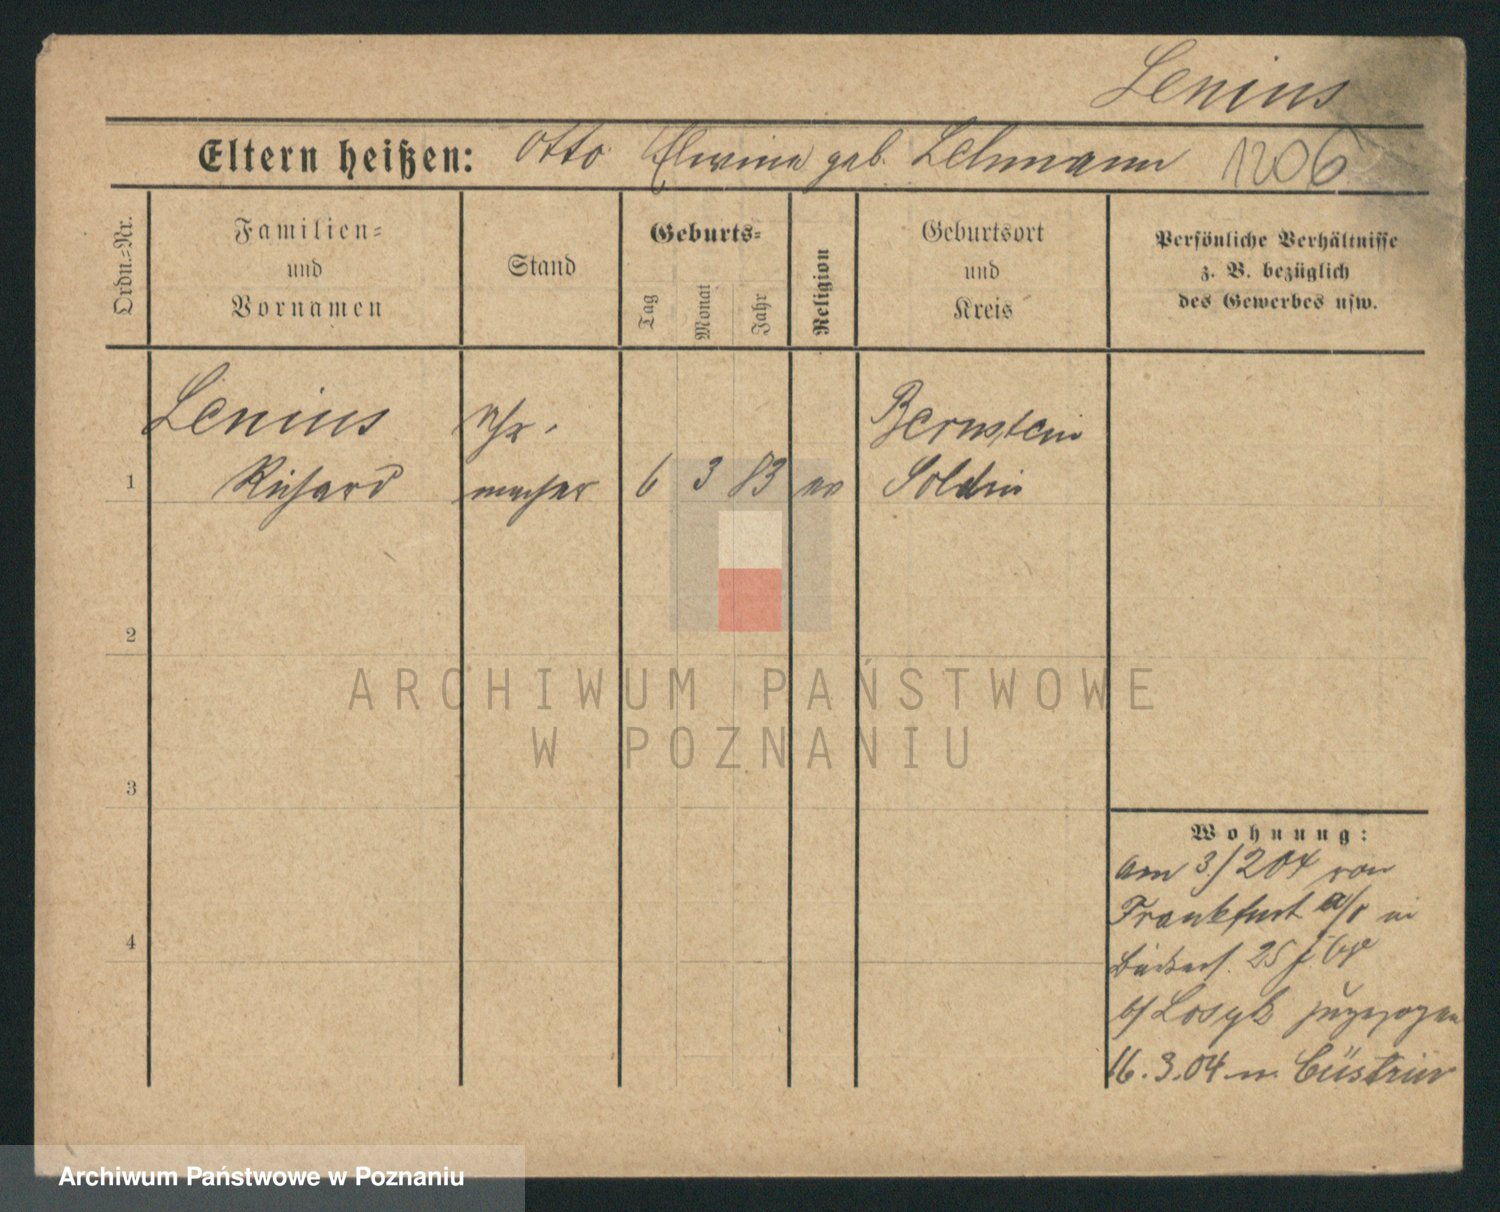 Lenius
Eltern heißen: Otto Elwine geb. Lehmann 1206
Ordn.-Nr.
Familien-
und
Vornamen
Stand
Geburts-
Tag
Monat
Jahr
Religion
Geburtsort
und
Kreis
Persönliche Verhältnisse
z. B. bezüglich
des Gewerbes usw.
Lenius Uhr- Bernstein
1 Richard macher 6 3 83 ev Soldin
2
3
4
Wohnung:
am 3./2 04 von
Frankfurt a/O in
25
b/ zugezogen
16.3.04 n. Cüstrin
ARCHIWUM PAŃSTWOWE
W POZNANIU
Archiwum Państwowe w Poznaniu